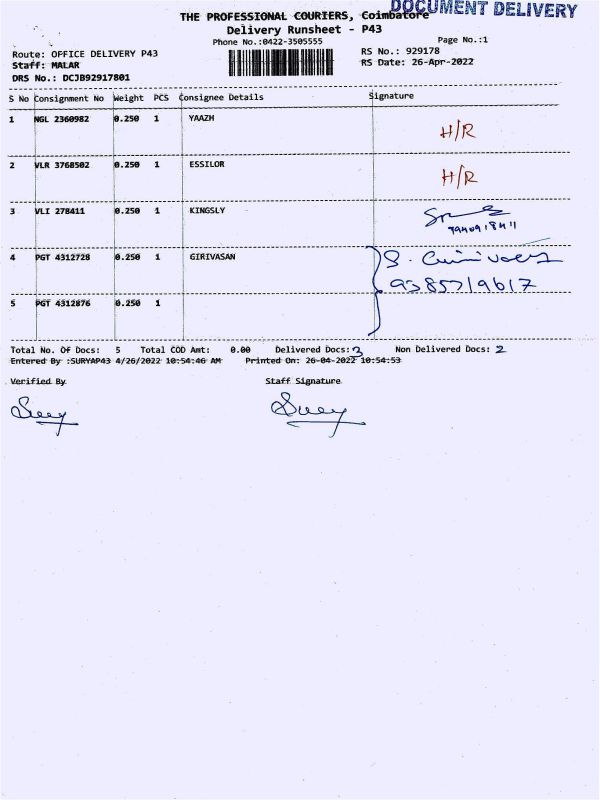 DOCUMENT DELIVERY
THE PROFESSIONAL COURIERS, Coimbatore
Delivery Runsheet - P43
Phone No.:0422-3505555
Page No.:1
Route: OFFICE DELIVERY P43
RS No.: 929178
Staff: MALAR
RS Date: 26-Apr-2022
DRS No.: DCJB92917801
S No Consignment No Weight PCS Consignee Details Signature
1 NGL 2360982 0.250 1 YAAZH H/R
2 VLR 3768502 0.250 1 ESSILOR H/R
3 VLI 278411 0.250 1 KINGSLY
4 PGT 4312728 0.250 1 GIRIVASAN
9385719617
5 PGT 4312876 0.250 1
Total No. Of Docs: 5 Total COD Amt: 0.00 Delivered Docs: 3 Non Delivered Docs: 2
Entered By :SURYAP43 4/26/2022 10:54:46 AM Printed On: 26-04-2022 10:54:53
Verified By Staff Signature